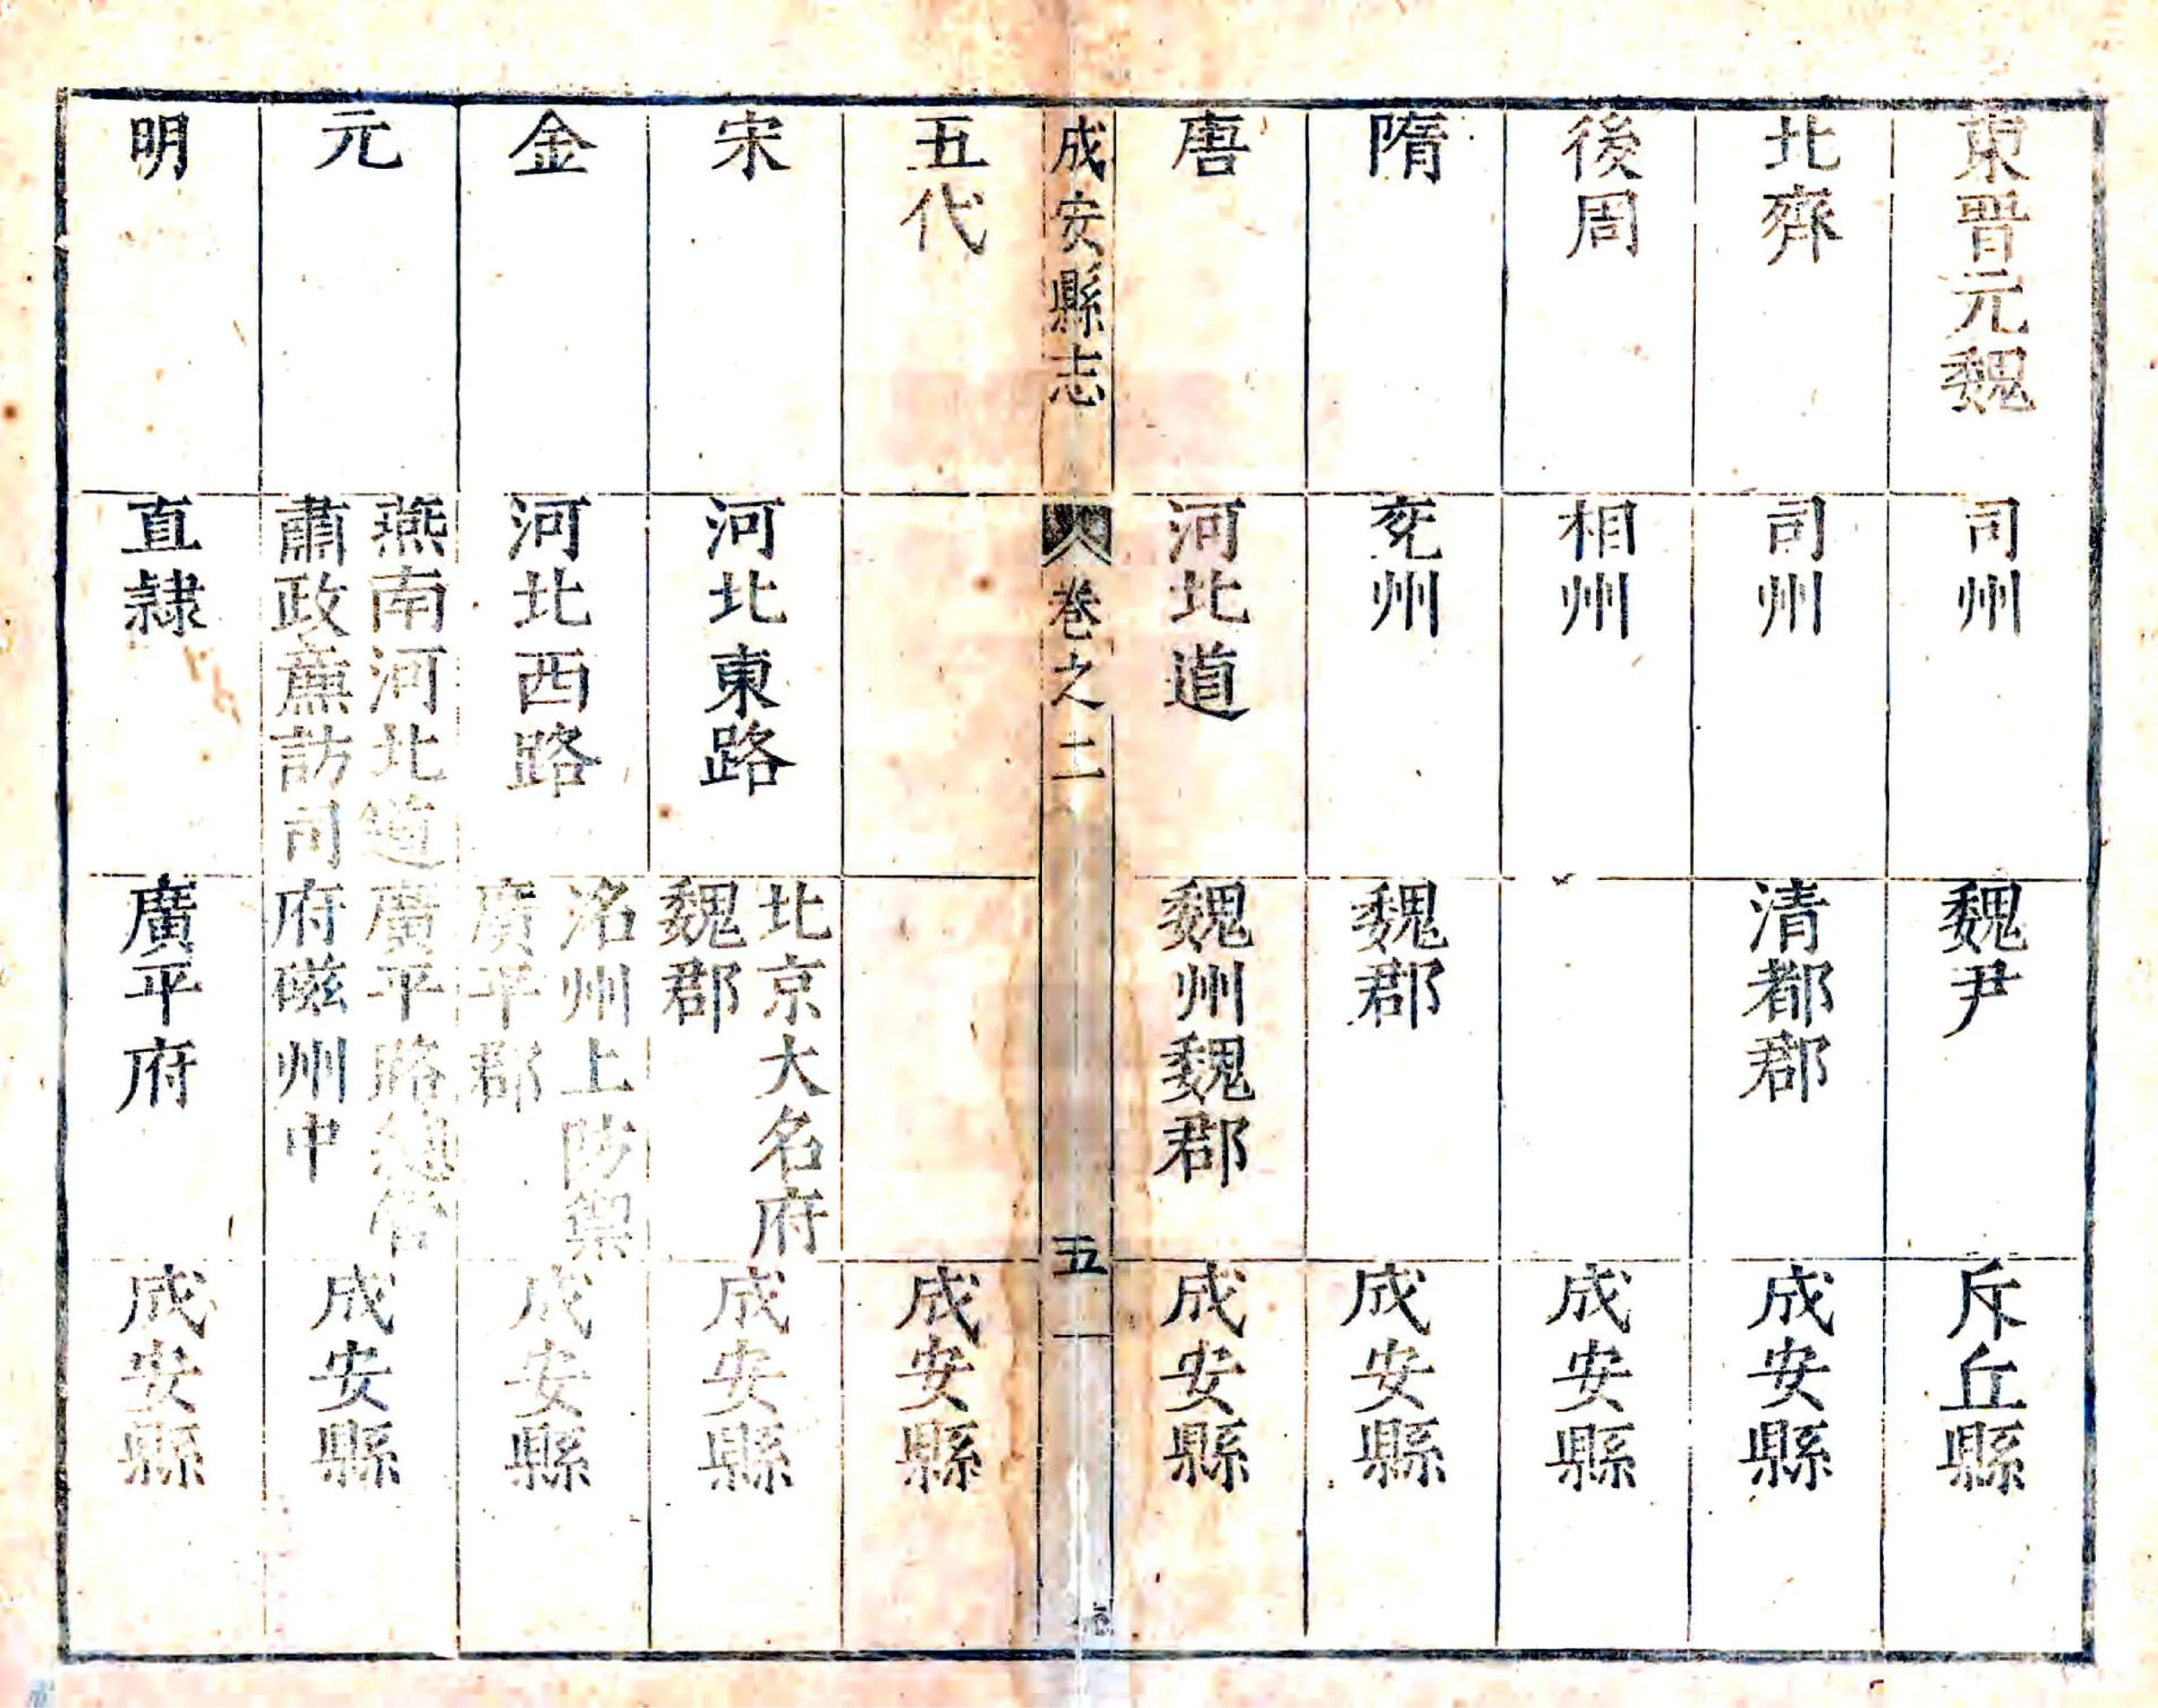 東晋元魏
司州
魏尹
斥丘縣
北齊
司州
清都郡
成安縣
後周
相州
成安縣
隋
兖州
魏郡
成安縣
唐
河北道
魏州魏郡
成安縣
成安縣志
卷之二
五
五代
成安縣
宋
河北東路
北京大名府
魏郡
成安縣
金
河北西路
洺州上防禦
廣平郡
成安縣
元
燕南河北道
肅政廉訪司
廣平路總管
府磁州中
成安縣
明
直隷
廣平府
成安縣